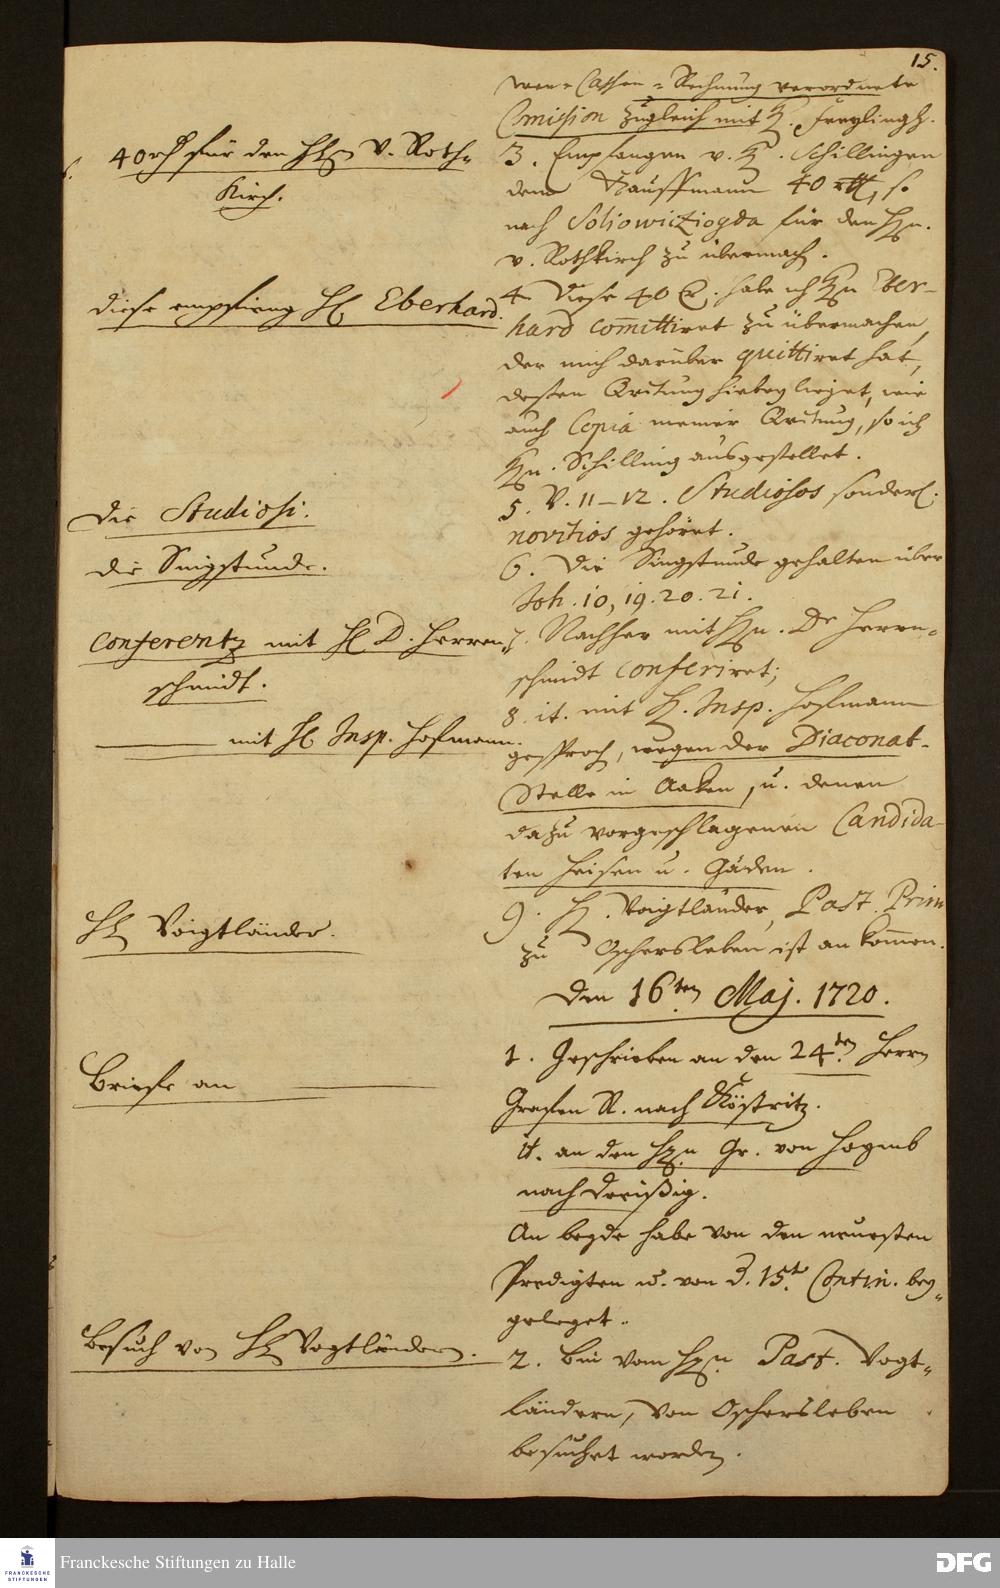 15.
wen-Cassen-Rechnung verordnete
Comission zugleich mit H. Freylingh.
40 rth für den HEn v. Roth-
Kirch.
3. Empfangen v. H. Schillingen
dem Kauffmann 40 rthl, so
nach Soliowiczîogda für den Hn.
v. Rothkirch zu übermach.
diese empfieng HE Eberhard.
4. Diese 40 R. habe ich Hn Eber-
hard committiret zu übermachen,
der mich darüber quittiret hat,
deßen Qvitung hiebey lieget, wie
auch Copia meiner Qvitung, so ich
Hn. Schilling ausgestellet.
Die Studiosi.
5. V. 11-12. Studiosos sonderl.
novitios gehöret.
die Singstunde.
6. Die Singstunde gehalten über
Joh. 10, 19. 20. 21.
Conferentz mit HE D. Herren-
schmidt.
7. Nachher mit Hn. Dr Herrn-
schmidt conferiret;
mit HE Insp. Hofmann.
8. it. mit H. Insp. Hofmann
gesproch, wegen der Diaconat-
Stelle in Aaken, u. denen
dazu vorgeschlagenen Candida-
ten Heisen u. Gäden.
HE Voigtländer.
9. H. Voigtländer, Past. Prim
zu Oschersleben ist an kommen.
Den 16ten Maj. 1720.
Briefe an
1. Geschrieben an den 24.den Herrn
Grafen R. nach Köstritz.
it. an den Hn. Gr. von
nach Dreißig.
An beyde habe von den neuesten
Predigten u. von d. 15t Contin. bey-
geleget.
Besuch von HE Vogtländern.
2. Bin vom Hn. Past. Vogt-
ländern, von Oschersleben
besuchet worden.
FRANCKESCHE
STIFTUNGEN
Franckesche Stiftungen zu Halle
DFG